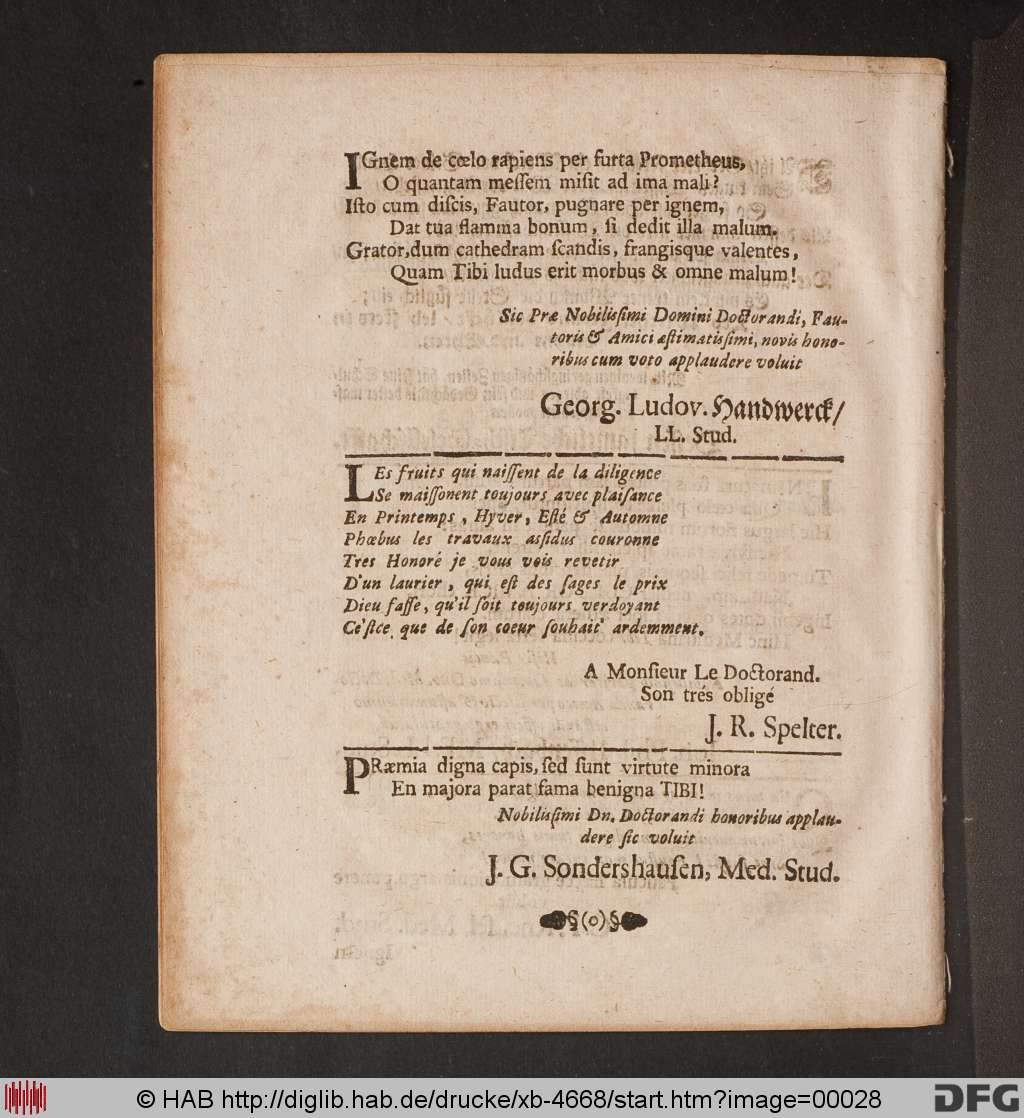 IGnem de cœlo rapiens per furta Prometheus,
O quantam meſſem miſit ad ima mali?
Iſto cum diſcis, Fautor, pugnare per ignem,
Dat tua flamma bonum, ſi dedit illa malum.
Grator, dum cathedram ſcandis, frangisque valentes,
Quam Tibi ludus erit morbus & omne malum!
Sic Præ Nobilisſimi Domini Doctorandi, Fau-
toris & Amici æſtimatisſimi, novis hono-
ribus cum voto applaudere voluit
Georg. Ludov. Handwerck/
LL. Stud.
LEs fruits qui naiſſent de la diligence
Se maiſſonent toujours avec plaiſance
En Printemps, Hyver, Eſté & Automne
Phœbus les travaux asſidus couronne
Tres Honoré je vous vois revetir
D'un laurier, qui eſt des ſages le prix
Dieu faſſe, qu'il ſoit toujours verdoyant
Ce'ſtce que de ſon coeur ſouhait' ardemment.
A Monſieur Le Doctorand.
Son trés obligé
J. R. Spelter.
PRæmia digna capis, ſed ſunt virtute minora
En majora parat fama benigna TIBI!
Nobilisſimi Dn. Doctorandi honoribus applau-
dere ſic voluit
J. G. Sondershauſen, Med. Stud.
§(o)§
© HAB http://diglib.hab.de/drucke/xb-4668/start.htm?image=00028
DFG